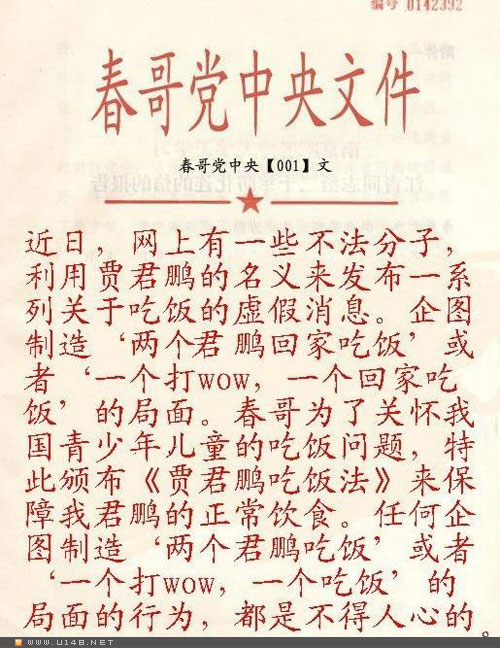 编号 0142392
春哥党中央文件
春哥党中央【001】文
近日，网上有一些不法分子，
利用贾君鹏的名义来发布一系
列关于吃饭的虚假消息。企图
制造‘两个君鹏回家吃饭’或
者‘一个打wow，一个回家吃
饭’的局面。春哥为了关怀我
国青少年儿童的吃饭问题，特
此颁布《贾君鹏吃饭法》来保
障我君鹏的正常饮食。任何企
图制造‘两个君鹏吃饭’或者
‘一个打wow，一个吃饭’的
局面的行为，都是不得人心的
WWW.U148.NET